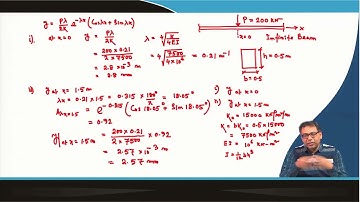 y = Pλ/2K e^-λx (Cosλx + Sinλx)
i) at x=0 y = Pλ/2K
= 200 x 0.21 / 2 x 7500
= 2.8 x 10^-3 m
= 2.8 mm
λ = ⁴√K/4EI
= ⁴√7500/4 x 10^6 = 0.21 m^-1
P = 200 kN
x=0 Infinite Beam
h = 0.5m
b = 0.5
ii) y at x = 1.5m
λx = 0.21 x 1.5 = 0.315 x 180°/π = 18.05°
A_λx=1.5 = e^-0.315 (Cos 18.05° + Sin 18.05°)
= 0.92
y| at x = 1.5m = 200 x 0.21 / 2 x 7500 x 0.92
= 2.57 x 10^-3 m
= 2.57 mm
i) y at x=0
ii) y at x = 1.5m
K₀ = 15000
K = bK₀ = 0.5 x 15000
= 7500
EI = 10^6 kN-m²
I = 1/12 bh³